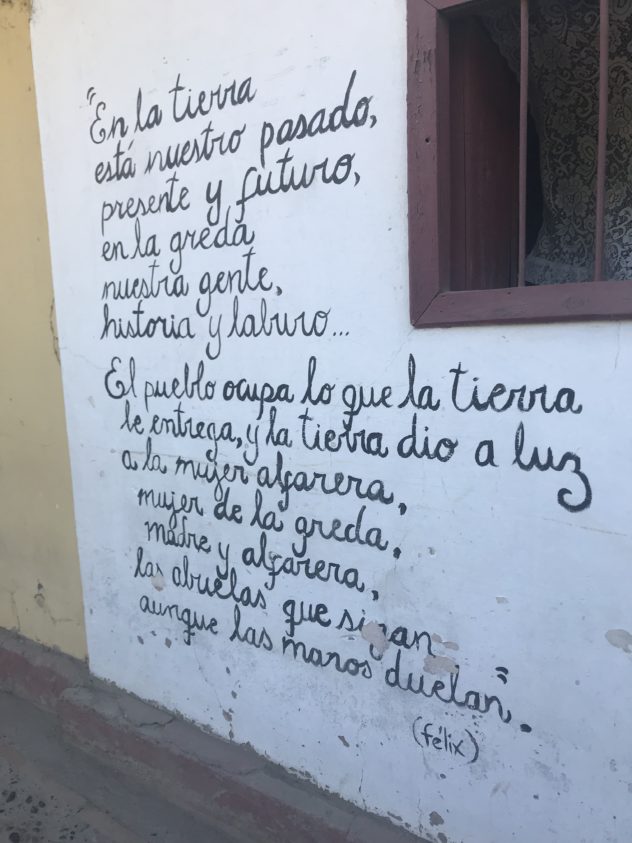 "En la tierra
está nuestro pasado,
presente y futuro,
en la greda
nuestra gente,
historia y laburo...
El pueblo ocupa lo que la tierra
le entrega, y la tierra dio a luz
a la mujer alfarera,
mujer de la greda,
madre y alfarera,
las abuelas que sigan
aunque las manos duelan".
(félix)